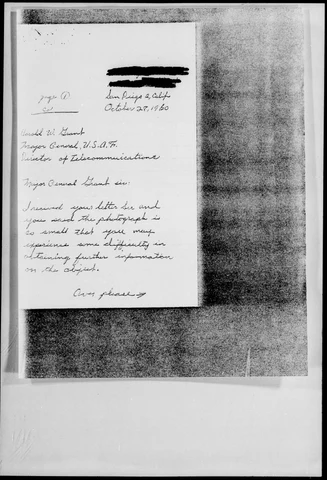 page ①
San Diego 2, Calif
October 27, 1960
Harold W. Grant
Mayor General, U.S.A.F.
Director of Telecommunications
Mayor General Grant sir:
I received your letter Sir and
you said the photograph is
so small that you may
experience some difficulty in
obtaining further information
on the object.
Over please